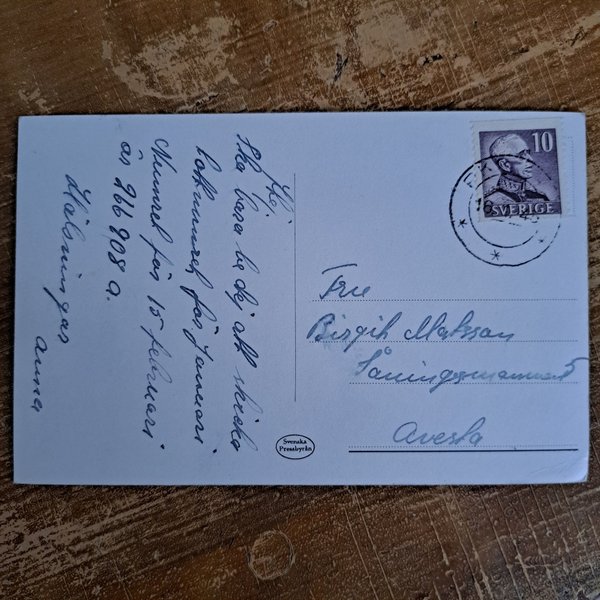 Hej
Ska bara be dej att skicka
lottnumret för Januari
Numret för 15 februari
är 966 908 a.
Hälsningar
Anna
10
SVERIGE
Fru
Birgit Matsson
5
Avesta
Svenska
Pressbyrån